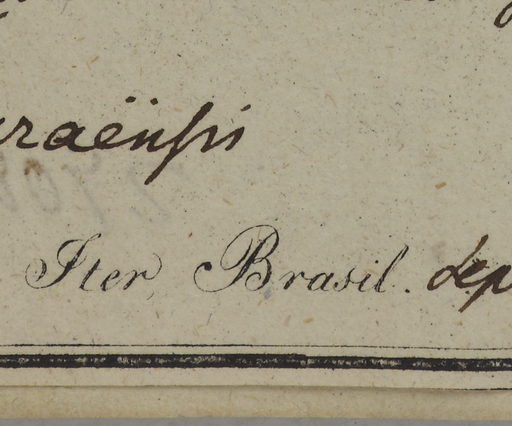 raënsis
Iter Brasil. dep